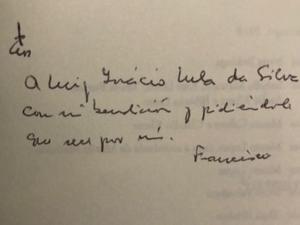 A Luiz Inácio Lula da Silva
con mi bendición y pidiéndole
que rece por mí.
Francisco